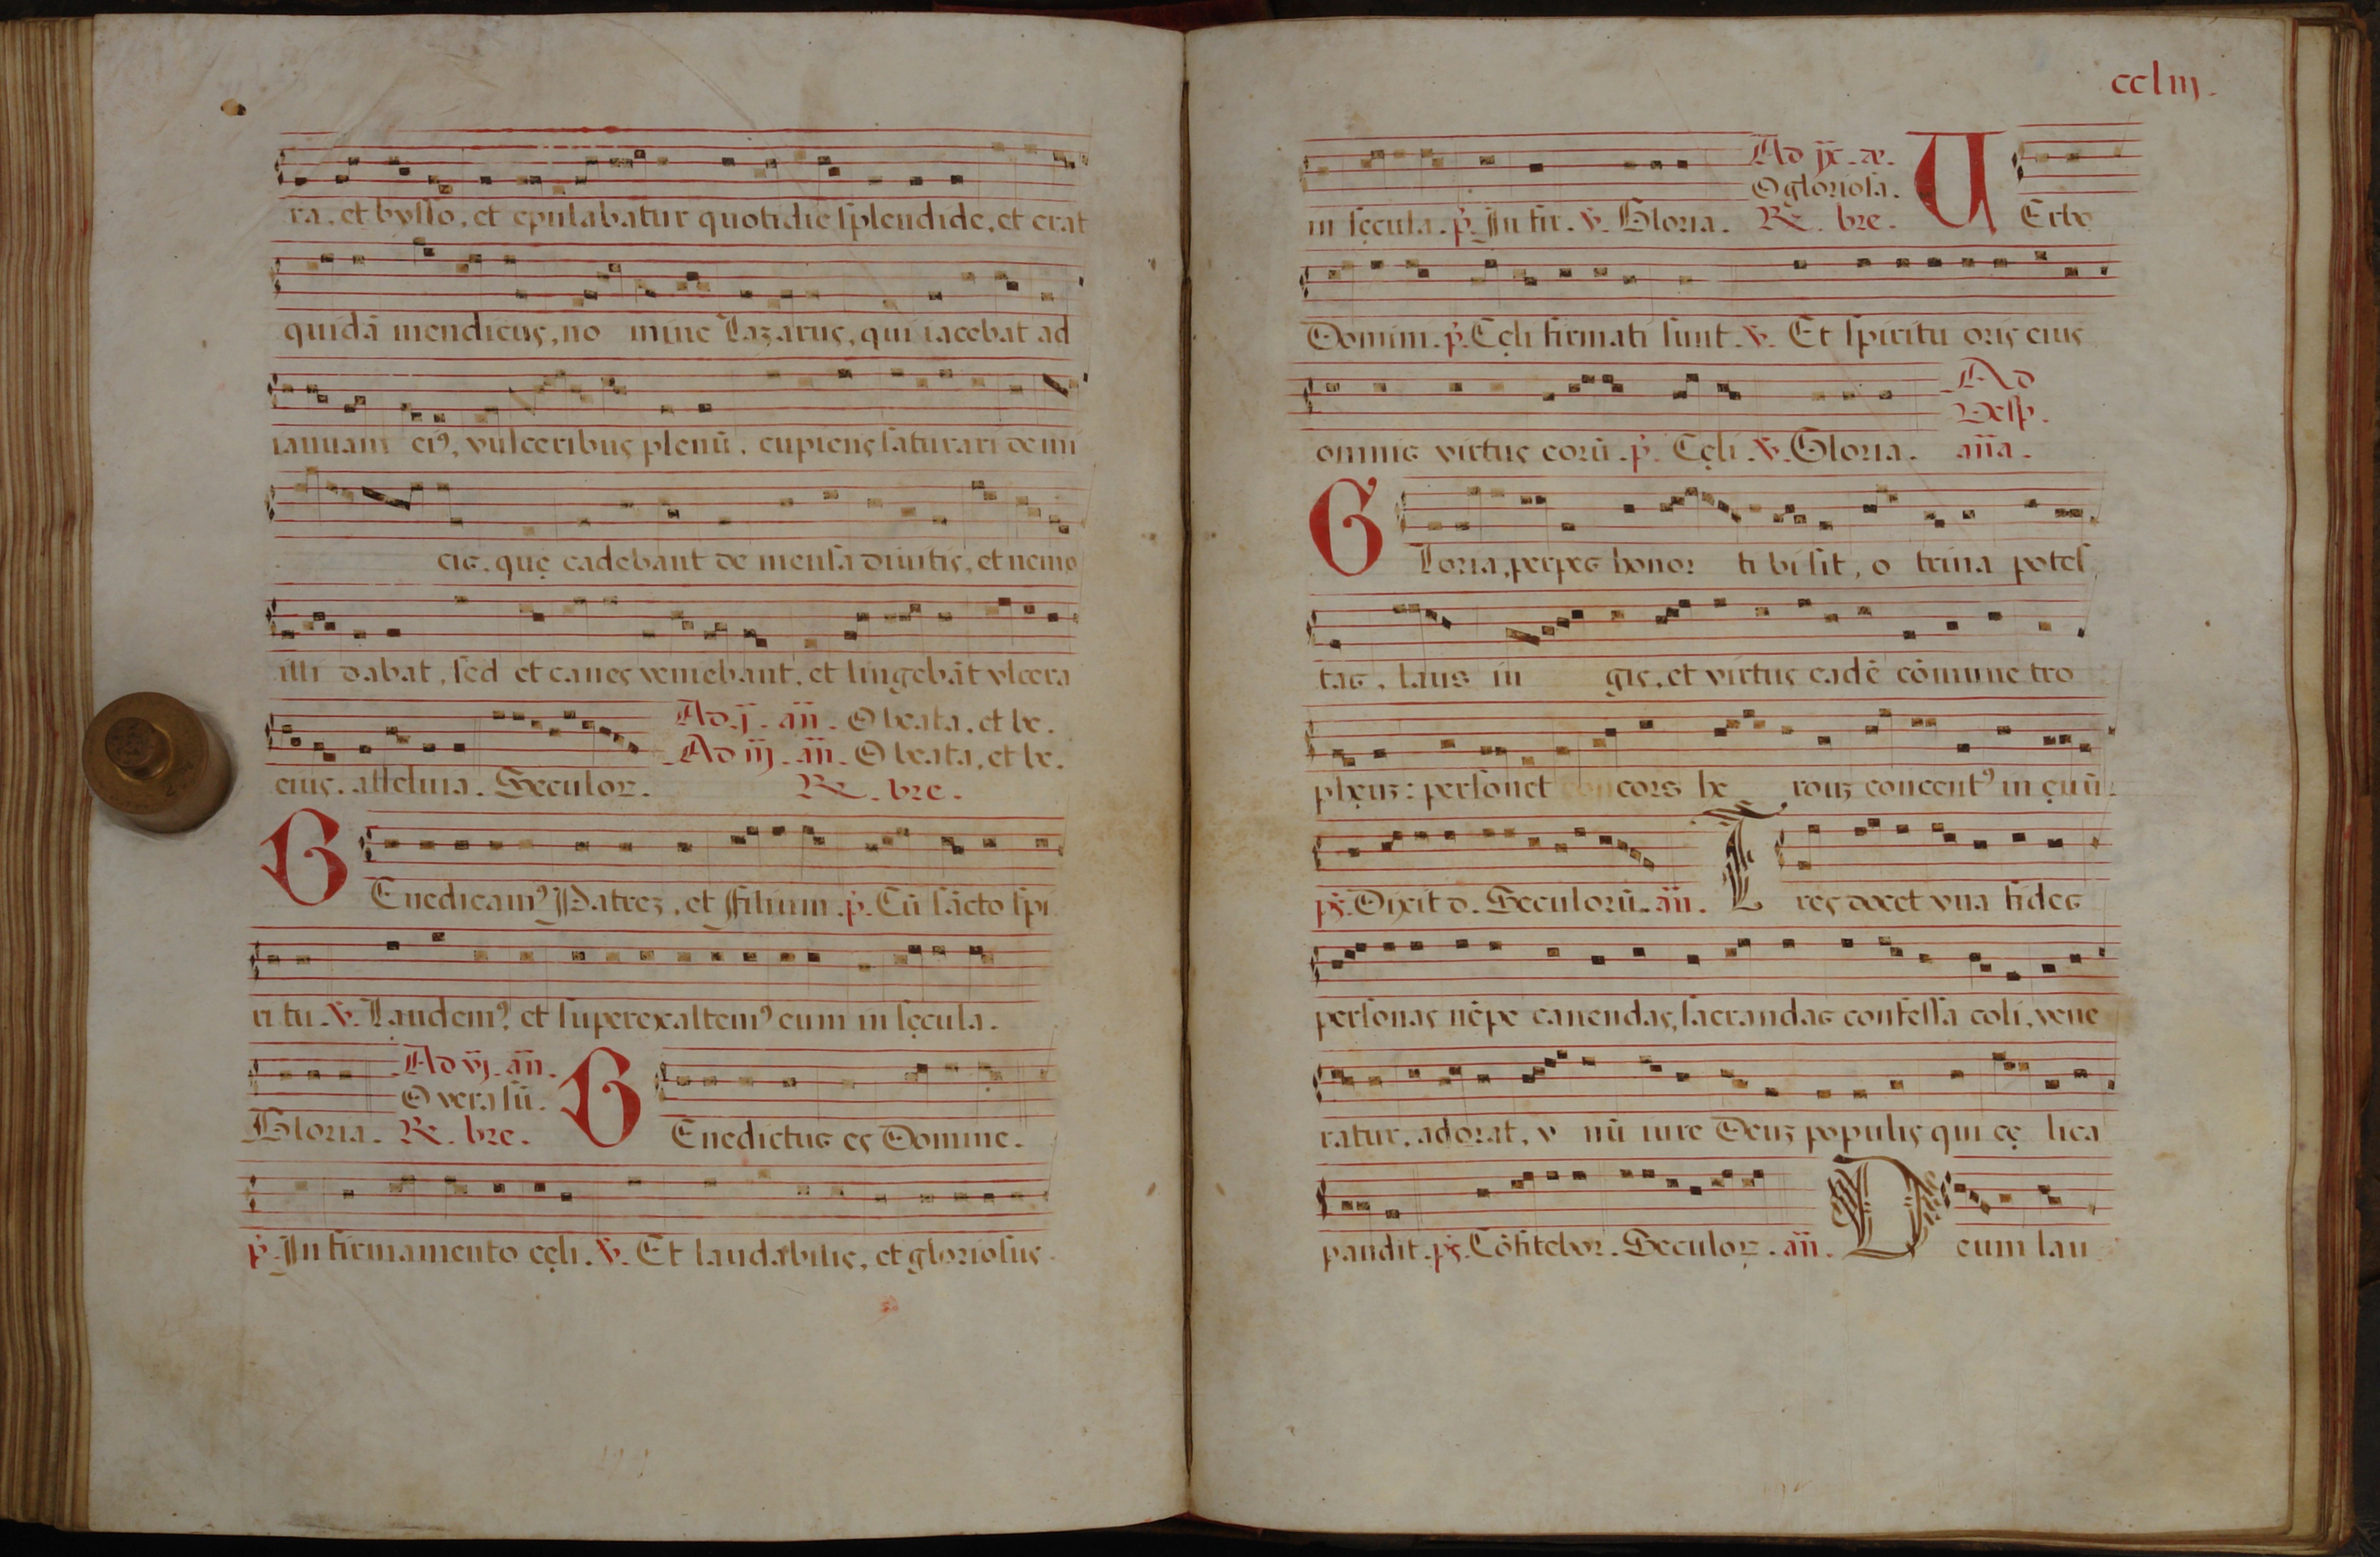 ra, et bysso, et epulabatur quotidie splendide, et erat
quidā mendicus, no mine Lazarus, qui iacebat ad
ianuam ei⁹, vulceribus plenū, cupiens saturari de mi
cis, quę cadebant de mensa diuitis, et nemo
illi dabat, sed et canes veniebant, et lingebāt vlcera
Ad j. añ. O beata, et be.
Ad iij. añ. O beata, et be.
eius. alleluia. Seculoꝝ. ℟. bre.
BEnedicam⁹ Patrez, et filium. p̄. Cū sācto spi
ri tu. ℣. Laudem⁹, et superexaltem⁹ eum in sęcula.
Ad vj. añ.
O vera sū.
Gloria. ℟. bre. BEnedictus es Domine.
p̄. In firmamento cęli. ℣. Et laudabilis, et gloriosus.
ccliij.
Ad jx. æ.
O gloriosa.
in sęcula. p̄. In fir. ℣. Gloria. ℟. bre. UErbo
Domini. p̄. Cęli firmati sunt. ℣. Et spiritu oris eius
Ad
Vesp.
omnis virtus eorū. p̄. Cęli. ℣. Gloria. aña.
GLoria, perpes honor ti bi sit, o trina potes
tas, laus iu gis, et virtus eadē cōmune tro
phęuz: personet concors he rouz concent⁹ in ęuū:
ps. Dixit d. Seculorū. añ. Tres docet vna fides
personas nēpe canendas, sacrandas confessa coli, vene
ratur, adorat, v nū iure Deuz populis qui cę lica
pandit. ps. Cōfitebor. Seculoꝝ. añ. Decum lau